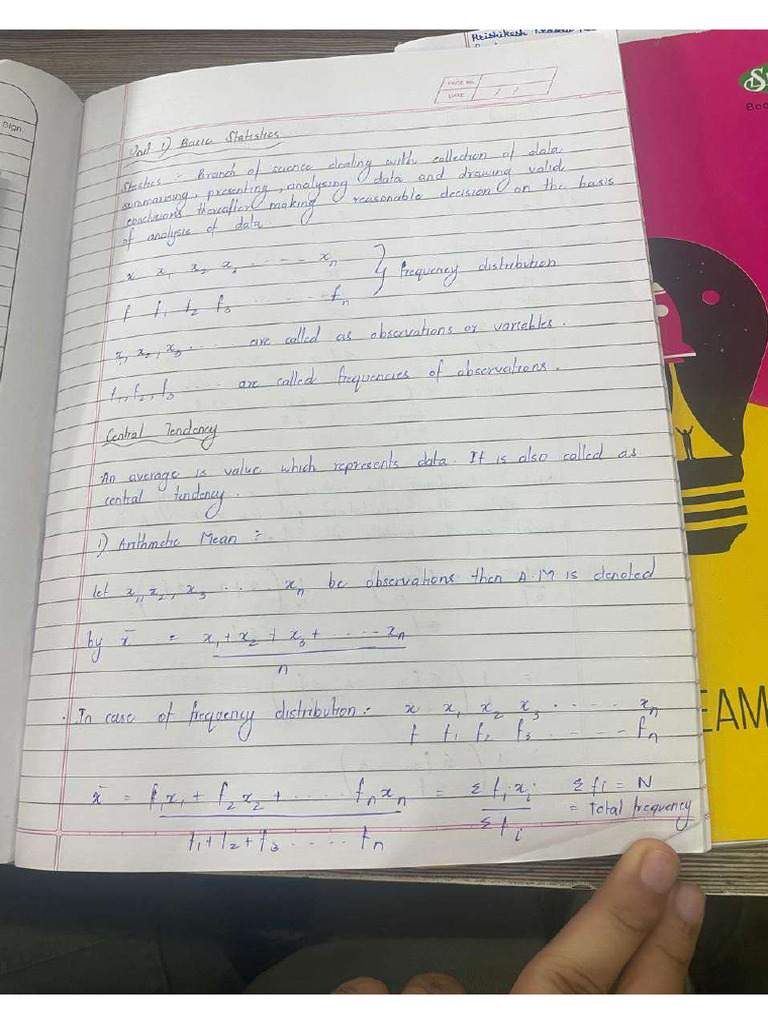 Hrishikesh
Sign.
PAGE NO.
DATE / /
Unit 1) Basic Statistics
Stastics :- Branch of science dealing with collection of data
summarising, presenting, analysing data and drawing valid
conclusions thereafter making reasonable decision on the basis
of analysis of data.
x x₁ x₂ x₃ ...... xₙ } frequency distribution
f f₁ f₂ f₃ ...... fₙ
x₁, x₂, x₃ ... are called as observations or variables.
f₁, f₂, f₃ ... are called frequencies of observations.
Central Tendency
An average is value which represents data. It is also called as
central tendency.
1) Arithmetic Mean :-
let x₁, x₂, x₃ ..... xₙ be observations then A.M is denoted
by x̄ = x₁ + x₂ + x₃ + ..... xₙ
n
. In case of frequency distribution :- x x₁ x₂ x₃ ..... xₙ
f f₁ f₂ f₃ ..... fₙ
x̄ = f₁x₁ + f₂x₂ + ..... fₙxₙ = Σfᵢxᵢ Σfi = N
f₁ + f₂ + f₃ ..... fₙ Σfᵢ = Total frequency
EAM